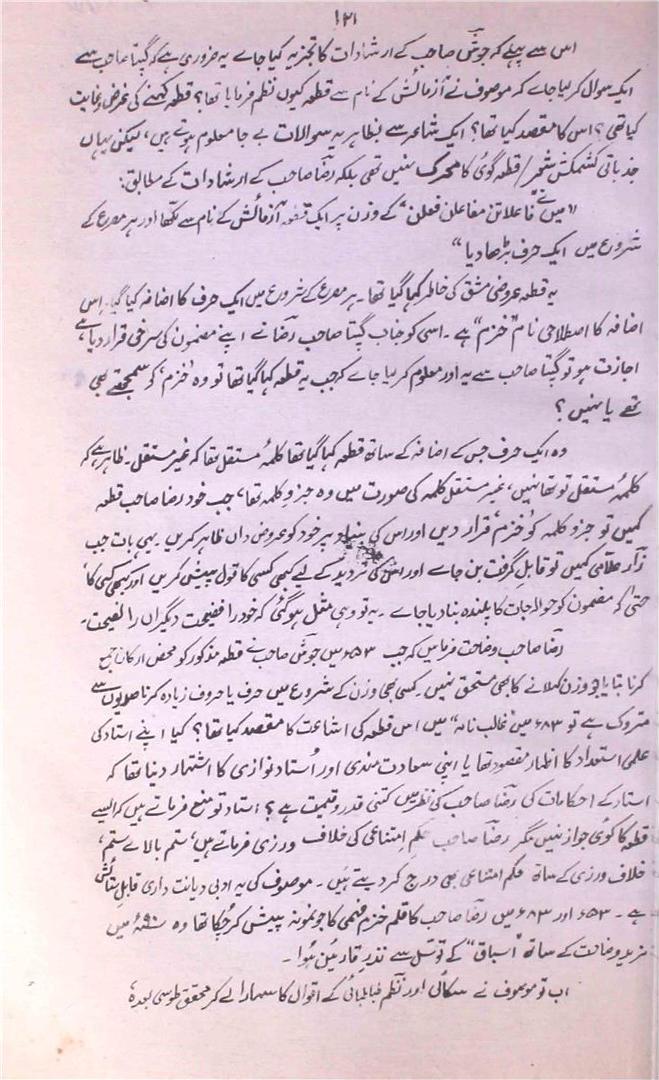 ۱۲۱
اس سے پہلے کہ جوشؔ صاحب کے ارشادات کا تجزیہ کیا جاے یہ ضروری ہے کہ گپتا صاحب سے
ایک سوال کر لیا جاے کہ موصوف نے آزمائش کے نام سے قطعہ کیوں نظم فرمایا تھا؟ قطعہ کہنے کی غرض و غایت
کیا تھی؟ اس کا مقصد کیا تھا؟ ایک شاعر سے بظاہر یہ سوالات بے جا معلوم ہوتے ہیں، لیکن یہاں
جذباتی کشمکش شعر/قطعہ گوئی کا محرک نہیں تھی بلکہ رضاؔ صاحب کے ارشادات کے مطابق:
"میں نے فاعلاتن مفاعلن فعلن" کے وزن پر ایک قطعہ آزمائش کے نام سے لکھا اور ہر مصرع کے
شروع میں ایک حرف بڑھا دیا"
یہ قطعہ عروضی مشق کی خاطر کہا گیا تھا۔ ہر مصرع کے شروع میں ایک حرف کا اضافہ کیا گیا۔ اس
اضافہ کا اصطلاحی نام "خزم" ہے۔ اسی کو جناب گپتا صاحب رضاؔ نے اپنے مضمون کی سرخی قرار دیا ہے
اجازت ہو تو گپتا صاحب سے یہ اور معلوم کر لیا جاے کہ جب یہ قطعہ کہا گیا تھا تو وہ 'خزم' کو سمجھتے بھی
تھے یا نہیں؟
وہ ایک حرف جس کے اضافہ کے ساتھ قطعہ کہا گیا تھا کلمۂ مستقل تھا کہ غیر مستقل۔ ظاہر ہے کہ
کلمۂ مستقل تو تھا نہیں، غیر مستقل کلمہ کی صورت میں وہ جزوِ کلمہ تھا، جب خود رضا صاحب قطعہ
کہیں تو جزوِ کلمہ کو خزم، قرار دیں اور اس کی بنیاد پر خود کو عروض داں ظاہر کریں۔ یہی بات جب
زارؔ علامی کہیں تو قابل گرفت بن جاے اور اس کی تردید کے لیے کبھی کسی کا قول پیش کریں اور کبھی کسی کا،
حتیٰ کہ مضمون کو حوالہ جات کا پلندہ بنا دیا جاے۔ یہ تو وہی مثل ہو گئی کہ خود را فضیحت دیگراں را نصیحت۔
رضاؔ صاحب وضاحت فرمائیں کہ جب ۵۳ء میں جوشؔ صاحب نے قطعہ مذکور کو محض ارکان جمع
کرنا بتایا جو وزن کہلانے کا بھی مستحق نہیں۔ کسی بھی وزن کے شروع میں حرف یا حروف زیادہ کرنا صدیوں سے
متروک ہے تو ۸۳ء میں غالب نامہ" میں اس قطعہ کی اشاعت کا مقصد کیا تھا؟ کیا اپنے استاد کی
علمی استعداد کا اظہار مقصود تھا یا اپنی سعادت مندی اور استاد نوازی کا اشتہار دینا تھا کہ
استاد کے احکامات کی رضاؔ صاحب کی نظر میں کتنی قدر و قیمت ہے؟ استاد تو منع فرماتے ہیں کہ ایسے
قطعہ کا کوئی جواز نہیں مگر رضاؔ صاحب حکمِ امتناعی کی خلاف ورزی فرماتے ہیں، ستم بالاے ستم،
خلاف ورزی کے ساتھ حکم امتناعی بھی درج کر دیتے ہیں۔ موصوف کی یہ ادبی دیانت داری قابلِ ستائش
ہے۔ ۵۳ء اور ۸۳ء میں رضاؔ صاحب کا قلم خزم فہمی کا جو نمونہ پیش کر چکا تھا وہ ۹۰ء میں
مزید وضاحت کے ساتھ "اسباق" کے توسل سے نذرِ قارئین ہوا۔
اب تو موصوف نے سکاکی اور نظم طباطبائی کے اقوال کا سہارا لے کر محقق طوسی بعدہٗ